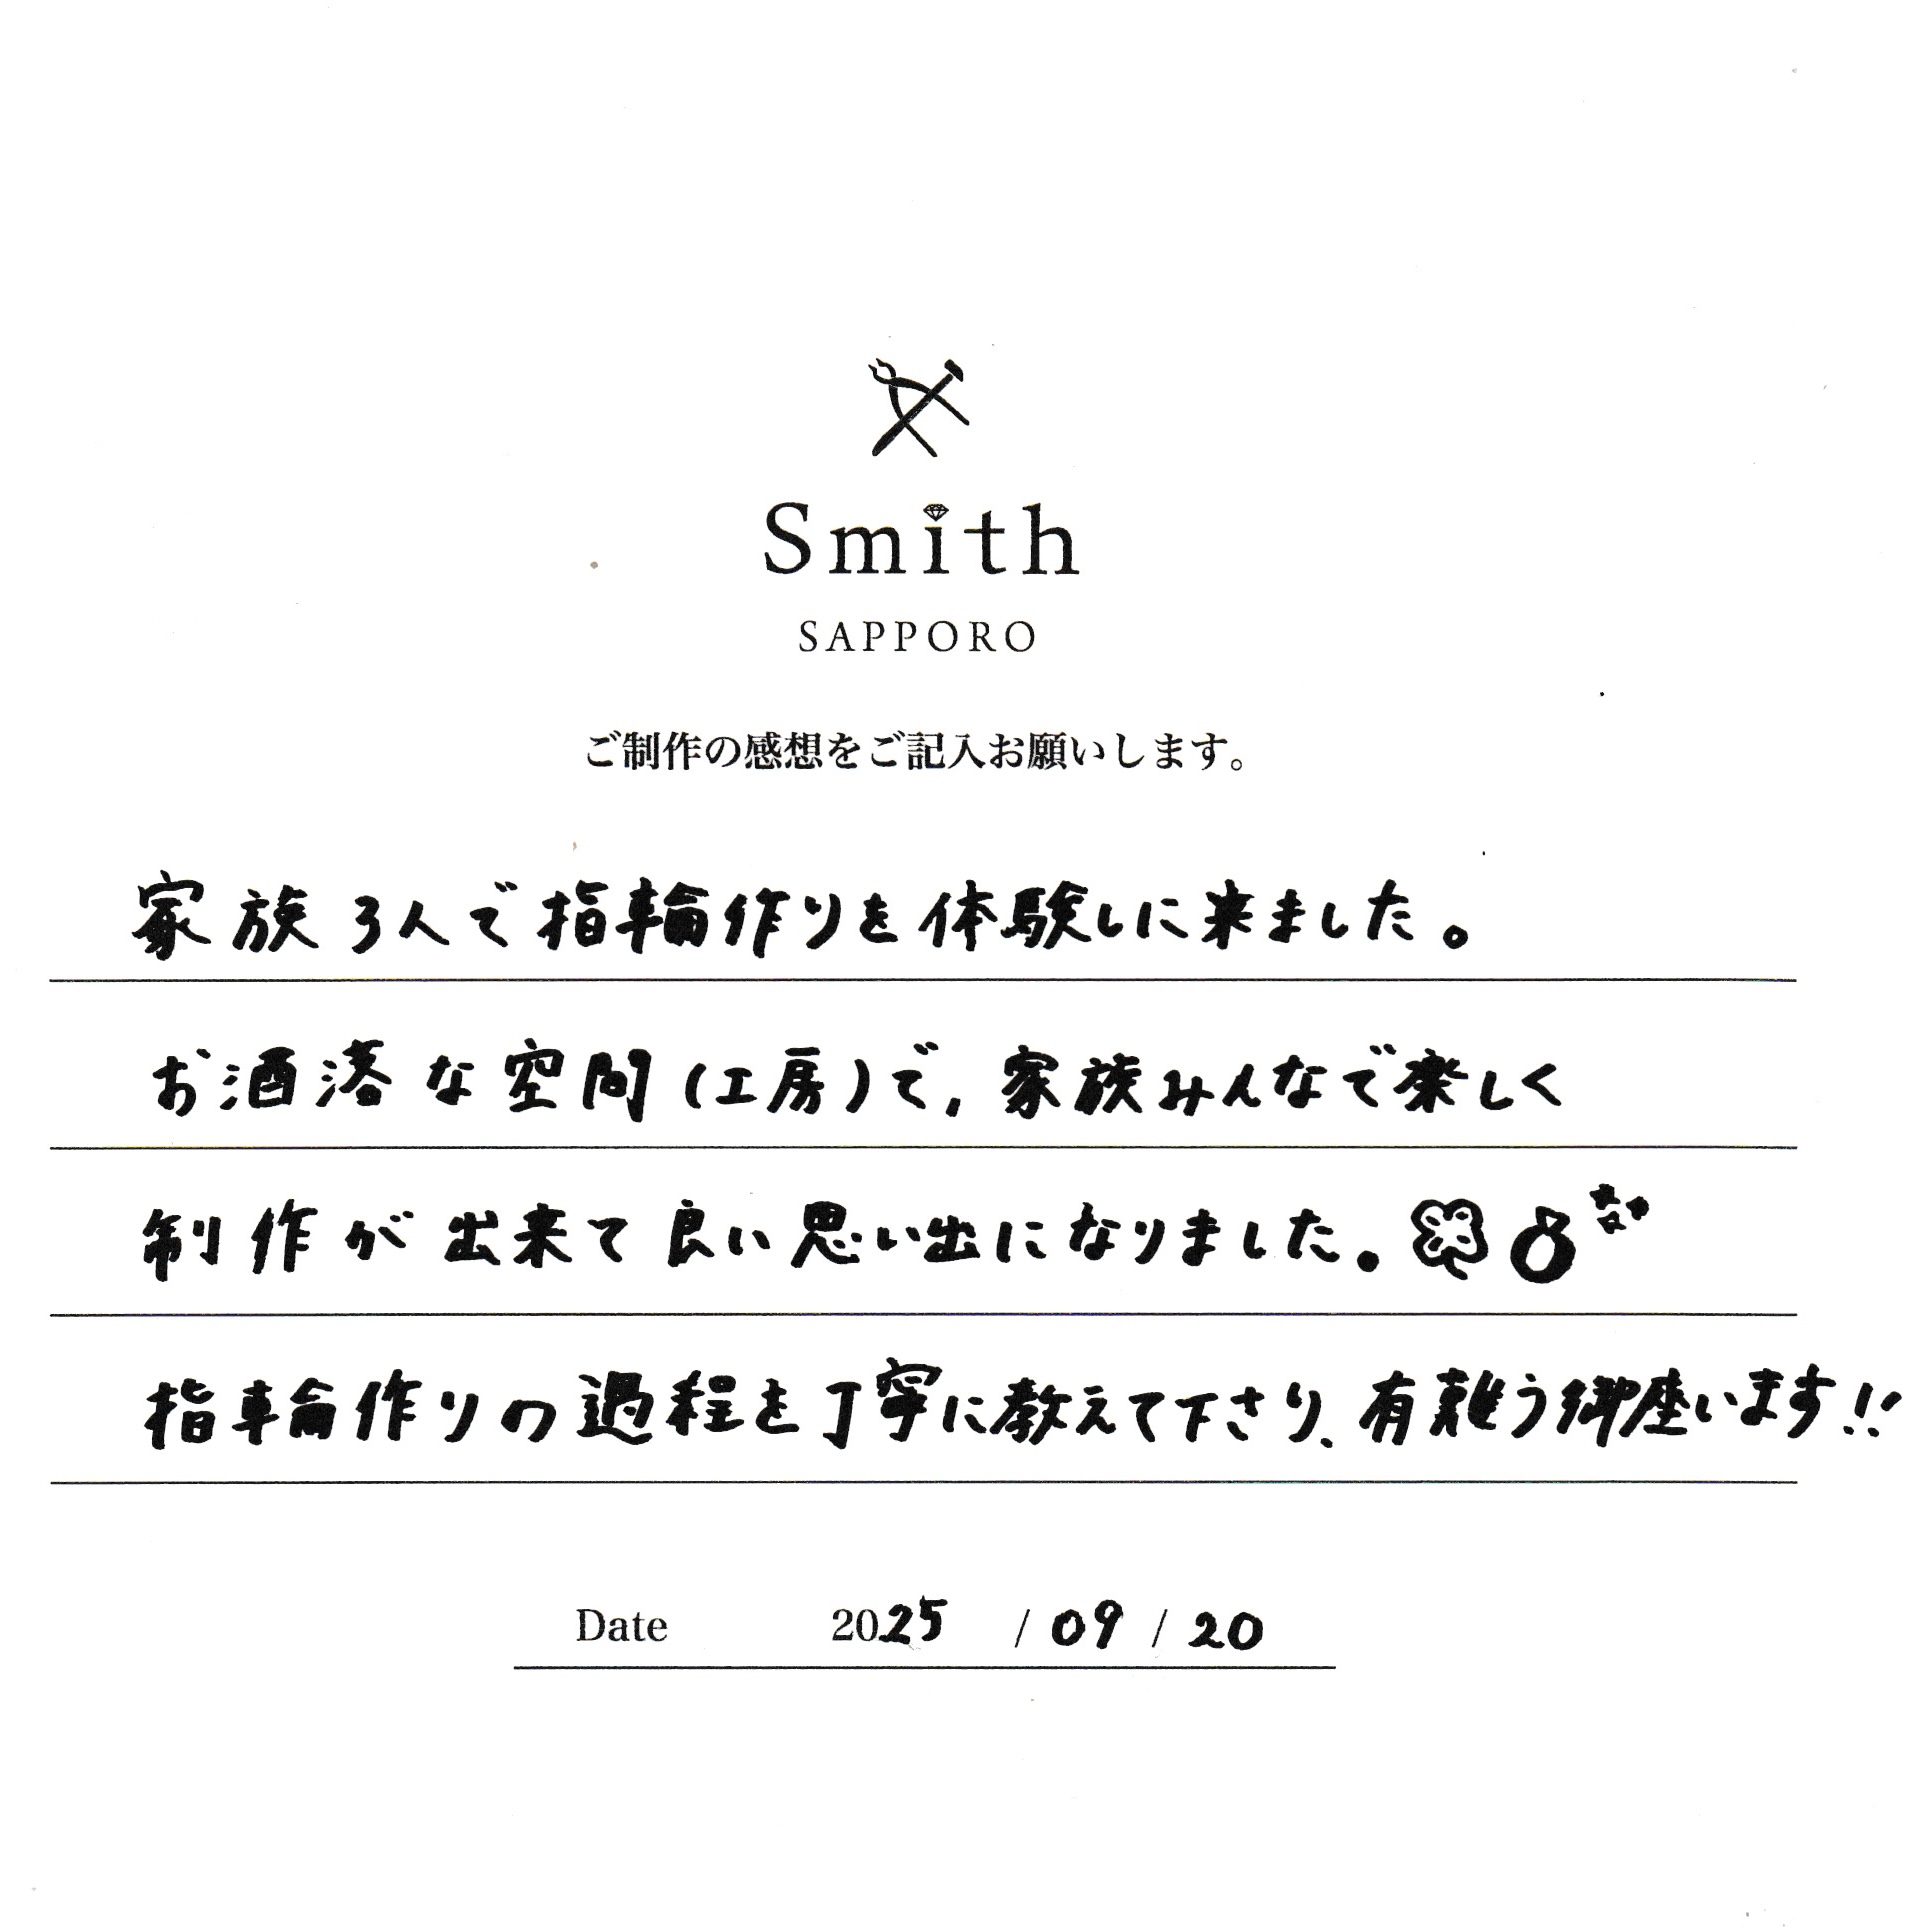 Smith
SAPPORO
ご制作の感想をご記入お願いします。
家族3人で指輪作りを体験しに来ました。
お洒落な空間(工房)で、家族みんなで楽しく
制作が出来て良い思い出になりました。
指輪作りの過程を丁寧に教えて下さり、有難う御座います!!
Date 2025 / 09 / 20